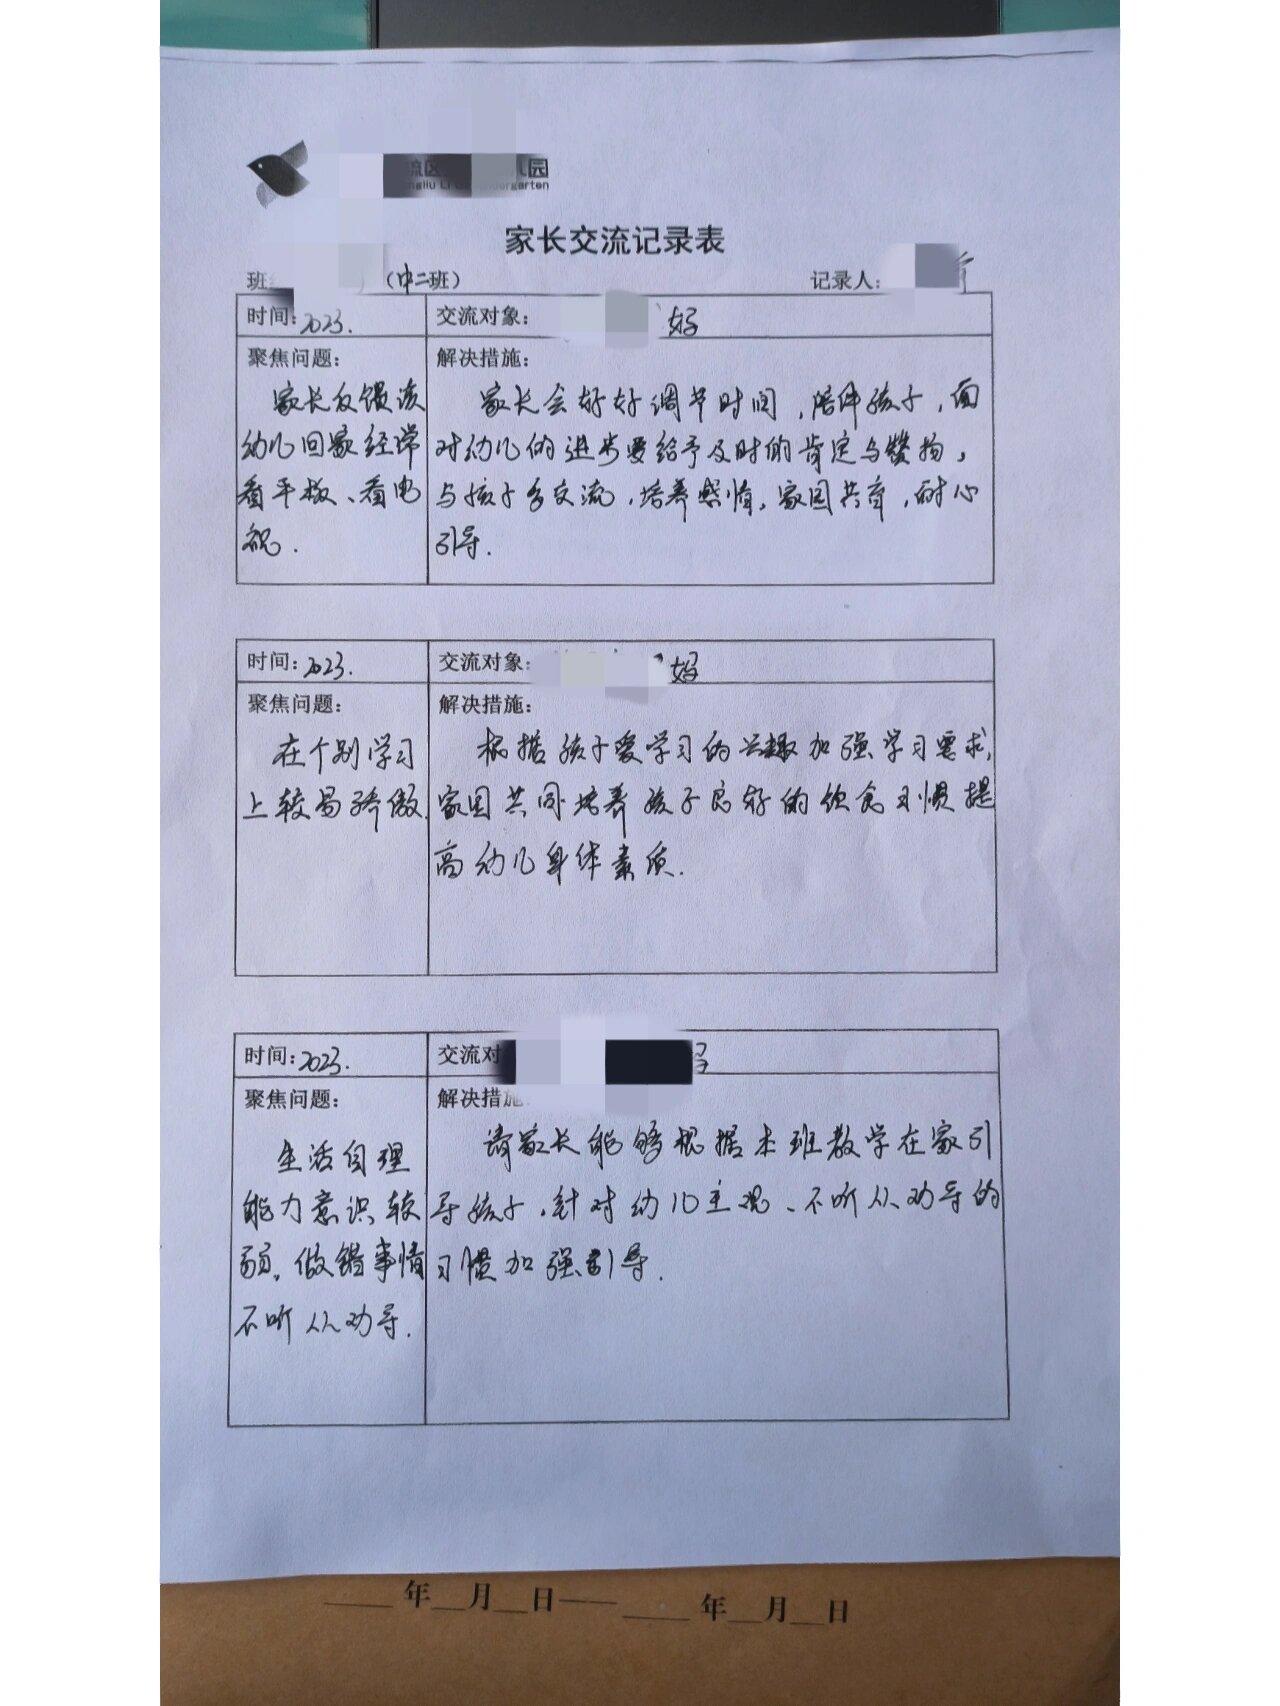 流区 儿园
家长交流记录表
班 (中二班) 记录人:
时间: 2023. 交流对象: 妈
聚焦问题: 解决措施:
家长反馈该
幼儿回家经常
看平板、看电
视.
家长会好好调节时间,陪伴孩子,面
对幼儿的进步要给予及时的肯定与赞扬,
与孩子多交流,培养感情。家园共育,耐心
引导.
时间: 2023. 交流对象: 妈
聚焦问题: 解决措施:
在个别学习
上较易骄傲.
根据孩子爱学习的兴趣加强学习要求,
家园共同培养孩子良好的饮食习惯提
高幼儿身体素质.
时间: 2023. 交流对
聚焦问题: 解决措施
生活自理
能力意识较
弱。做错事情
不听从劝导.
请家长能够根据本班教学在家引
导孩子,针对幼儿主观、不听从劝导的
习惯加强引导.
年__月__日—— 年__月__日